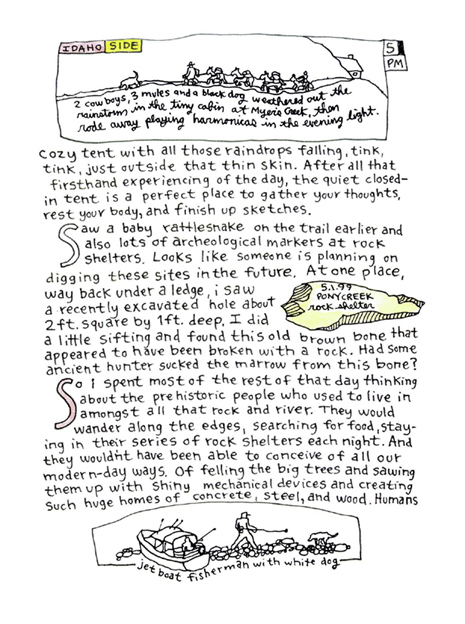 IDAHO SIDE
5 PM
2 cowboys, 3 mules and a black dog weathered out the
rainstorm in the tiny cabin at Myers Creek, then
rode away playing harmonicas in the evening light.
cozy tent with all those raindrops falling, tink,
tink, just outside that thin skin. After all that
firsthand experiencing of the day, the quiet closed-
in tent is a perfect place to gather your thoughts,
rest your body, and finish up sketches.
Saw a baby rattlesnake on the trail earlier and
also lots of archeological markers at rock
shelters. Looks like someone is planning on
digging these sites in the future. At one place,
way back under a ledge, i saw
a recently excavated hole about
2ft. square by 1ft. deep. I did
5.1.99
PONY CREEK
rock shelter
a little sifting and found this old brown bone that
appeared to have been broken with a rock. Had some
ancient hunter sucked the marrow from this bone?
So i spent most of the rest of that day thinking
about the prehistoric people who used to live in
amongst all that rock and river. They would
wander along the edges, searching for food, stay-
ing in their series of rock shelters each night. And
they wouldn't have been able to conceive of all our
modern-day ways. Of felling the big trees and sawing
them up with shiny mechanical devices and creating
such huge homes of concrete, steel, and wood. Humans
jet boat fisherman with white dog